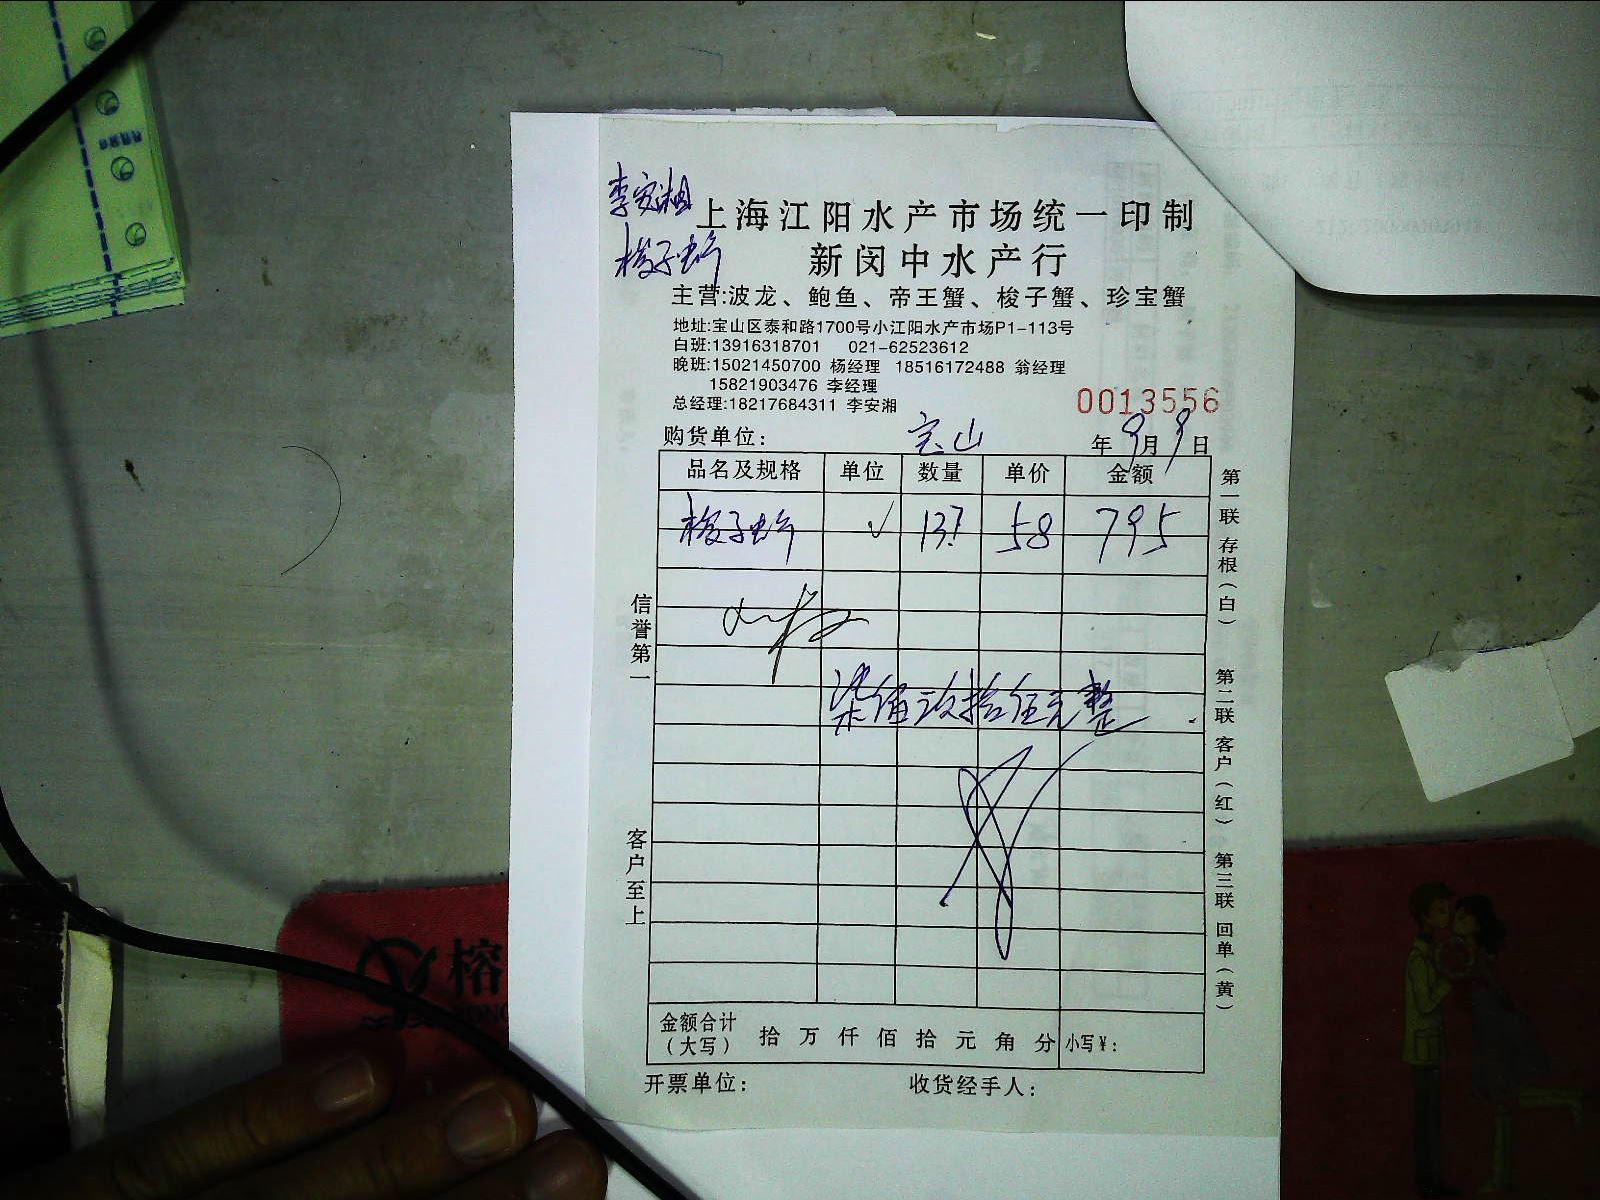 李安湘
梭子蟹
上海江阳水产市场统一印制
新闵中水产行
主营:波龙、鲍鱼、帝王蟹、梭子蟹、珍宝蟹
地址:宝山区泰和路1700号小江阳水产市场P1-113号
白班:13916318701 021-62523612
晚班:15021450700 杨经理 18516172488 翁经理
15821903476 李经理
总经理:18217684311 李安湘
0013556
购货单位: 宝山 年 9月 9日
品名及规格 单位 数量 单价 金额
梭子蟹 √ 137 58 795
柒佰玖拾伍元整
金额合计(大写) 拾 万 仟 佰 拾 元 角 分 小写¥:
开票单位: 收货经手人:
信誉第一 客户至上
第一联 存根(白) 第二联 客户(红) 第三联 回单(黄)
榕